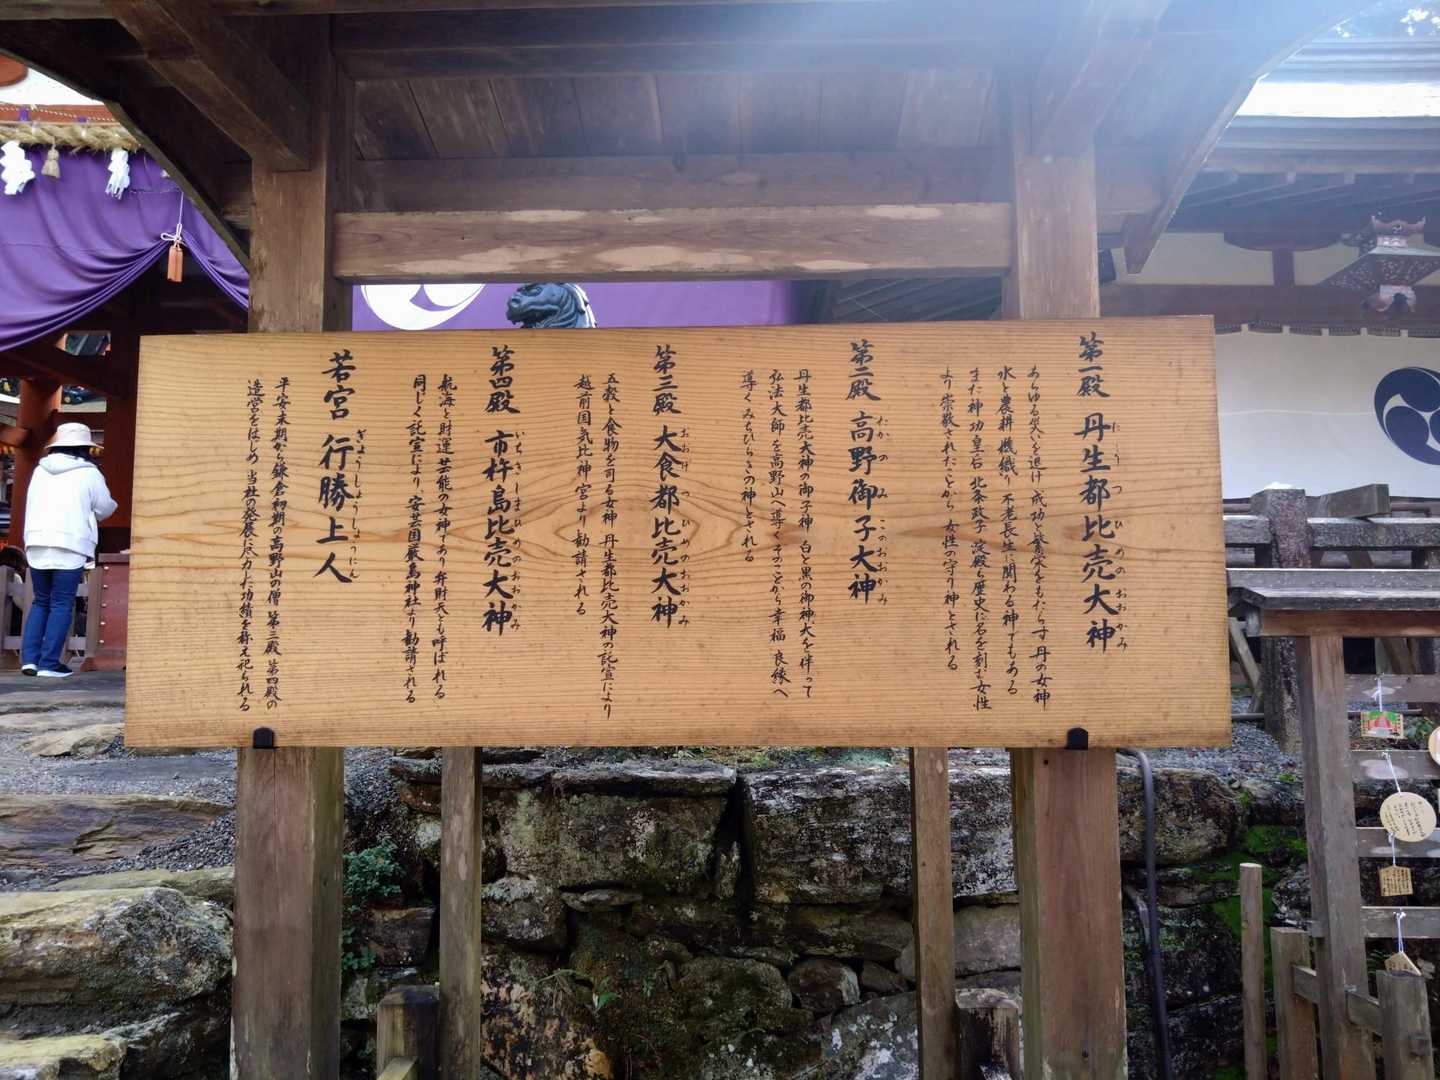 第一殿 丹生都比売大神
にうつひめのおおかみ
あらゆる災いを退け 成功と繁栄をもたらす 丹の女神
水と農耕 機織り 不老長生に関わる神でもある
また神功皇后 北条政子 淀殿ら歴史に名を刻む女性
より崇敬されたことから 女性の守り神とされる
第二殿 高野御子大神
たかのみこのおおかみ
丹生都比売大神の御子神 白と黒の御神犬を伴って
弘法大師を高野山へ導くそのことから 幸福 良縁へ
導くみちひらきの神とされる
第三殿 大食都比売大神
おおげつひめのおおかみ
五穀と食物を司る女神 丹生都比売大神の託宣により
越前国気比神宮より勧請される
第四殿 市杵島比売大神
いちきしまひめのおおかみ
航海と財運 芸能の女神であり 弁財天とも呼ばれる
同じく託宣により、安芸国厳島神社より勧請される
若宮 行勝上人
ぎょうしょうしょうにん
平安末期から鎌倉初期の高野山の僧 第三殿 第四殿の
造営をはじめ 当社の発展に尽力した功績を称え祀られる